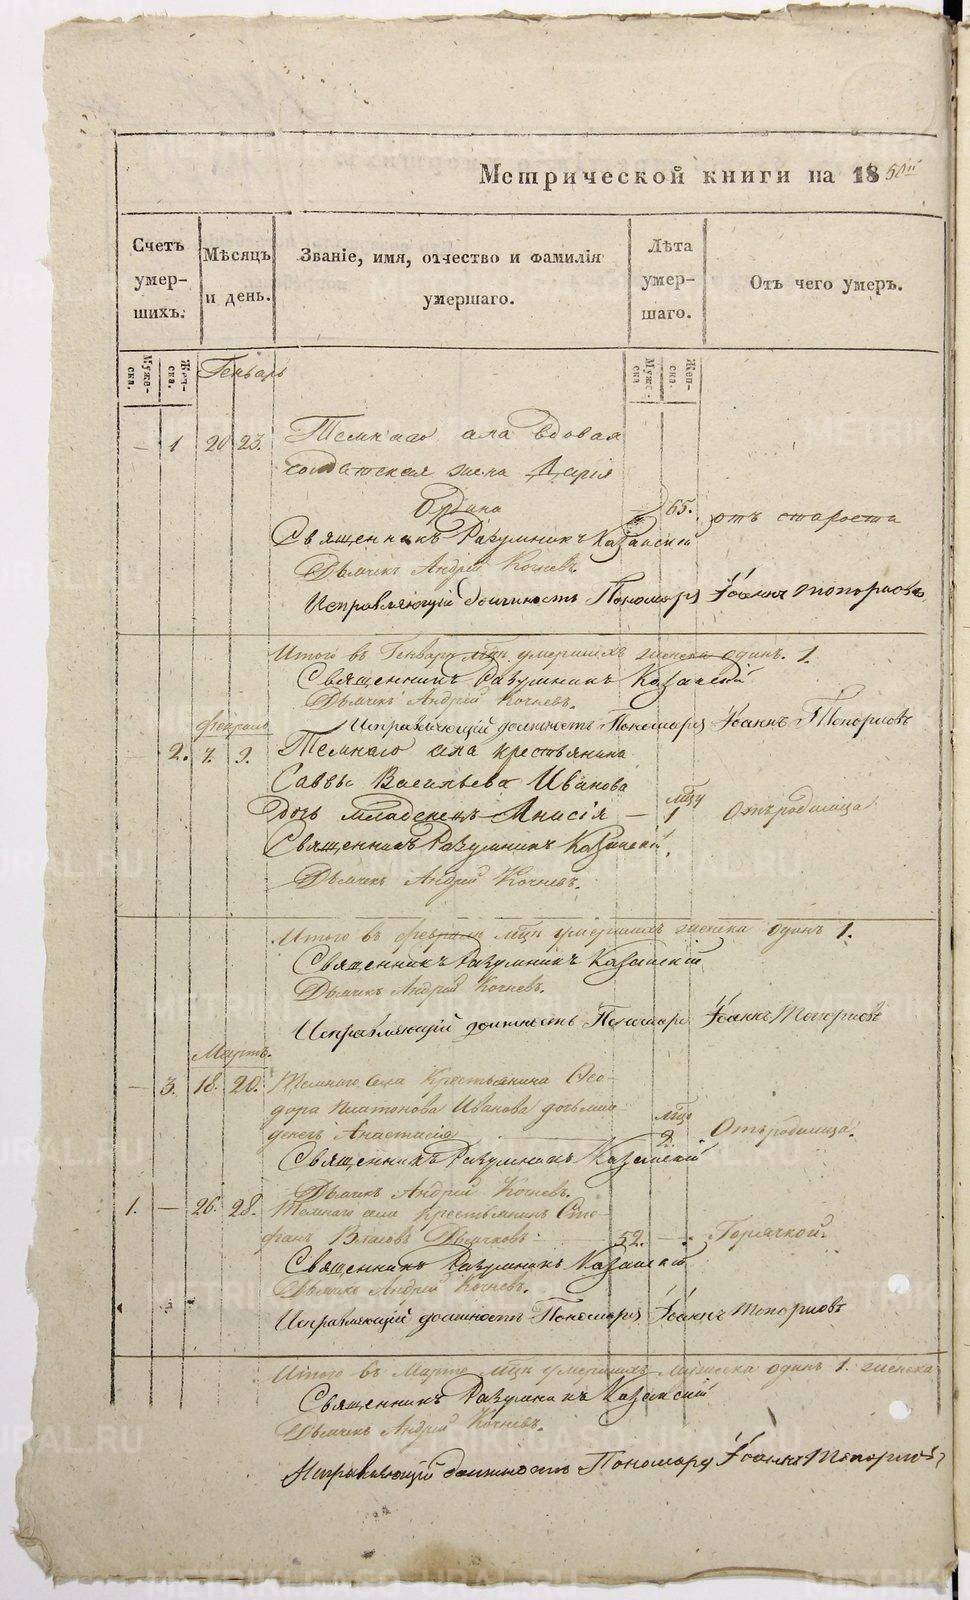 Метрической книги на 1850й
Счетъ умер- шихъ.
Мѣсяцъ и день.
Званіе, имя, отчество и фамилія умершаго.
Лѣта умер- шаго.
Отъ чего умеръ.
Мужс- ска.
Жен- ска.
Мужс- ска
Жен- ска.
Генварь
— 1 20 23. Темнаго села вдовая
солдатская жена Дарія
65. отъ старости
Священникъ Разумникъ Казанскій
Дьячекъ Андрей Кочневъ
Исправляющій должность Пономаря Іоаннъ Топорковъ
Итого въ Генварѣ мцѣ умершихъ женска одинъ. 1.
Священникъ Разумникъ Казанскій
Дьячекъ Андрей Кочневъ.
Исправляющій должность Пономаря Іоаннъ Топорковъ
Февраль
2. 7. 9. Темнаго села крестьянина
Саввы Васильева Иванова
дочь младенецъ Анисія — мцу 1 Отъ родимца
Священникъ Разумникъ Казанскій
Дьячекъ Андрей Кочневъ.
Итого въ Февралѣ мцѣ умершихъ женска одинъ 1.
Священникъ Разумникъ Казанскій
Дьячекъ Андрей Кочневъ.
Исправляющій должность Пономаря Іоаннъ Топорковъ
Мартъ.
— 3. 18. 20. Темнаго села Крестьянина Ѳео-
дора Платонова Иванова дочь мла-
денецъ Анастасія мцо 2. Отъ родимца.
Священникъ Разумникъ Казанскій
Дьячекъ Андрей Кочневъ.
1. — 26. 28. Темнаго села Крестьянинъ Сте-
фанъ Власовъ Дьячковъ 52. — Горячкой.
Священникъ Разумникъ Казанскій
Дьячекъ Андрей Кочневъ.
Исправляющій должность Пономаря Іоаннъ Топорковъ
Итого въ Мартѣ мцѣ умершихъ мужеска одинъ 1. женска
Священникъ Разумникъ Казанскій
Дьячекъ Андрей Кочневъ.
Исправляющій должность Пономаря Іоаннъ Топорковъ